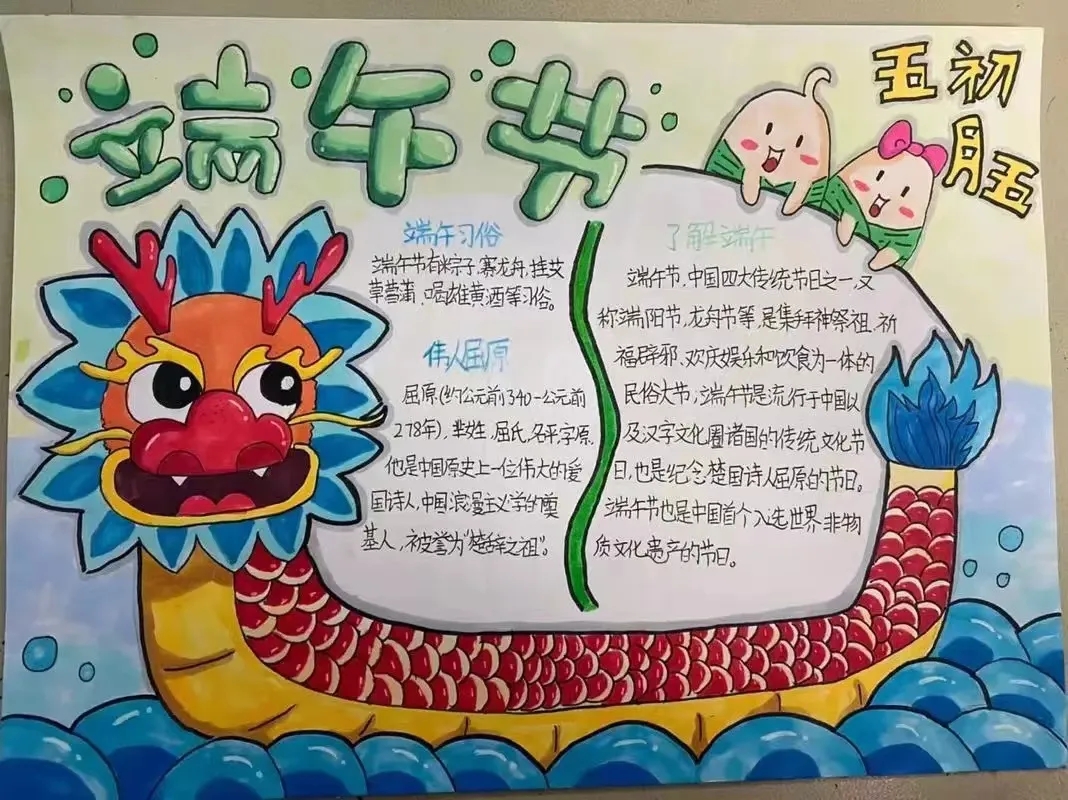 端午节
五初
月五
端午习俗
端午节有米宗子,赛龙舟,挂艾
草菖蒲、喝雄黄酒等习俗。
伟人屈原
屈原(约公元前340-公元前
278年),芈姓,屈氏,名平,字原,
他是中国原史上一位伟大的爱
国诗人,中国浪漫主义学的奠
基人,被誉为“楚辞之祖”。
了解端午
端午节,中国四大传统节日之一,又
称端阳节,龙舟节等,是集拜神祭祖、祈
福辟邪、欢庆娱乐和饮食为一体的
民俗大节,端午节是流行于中国以
及汉字文化圈诸国的传统文化节
日,也是纪念楚国诗人屈原的节日。
端午节也是中国首个入选世界非物
质文化遗产的节日。